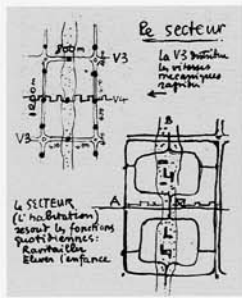 le secteur
800m
V3
La V3 distribue
les vitesses
mécaniques
rapides
V4
V3
B
A
le SECTEUR
(l'habitation)
résout les fonctions
quotidiennes:
Ravitailler
Elever l'enfance